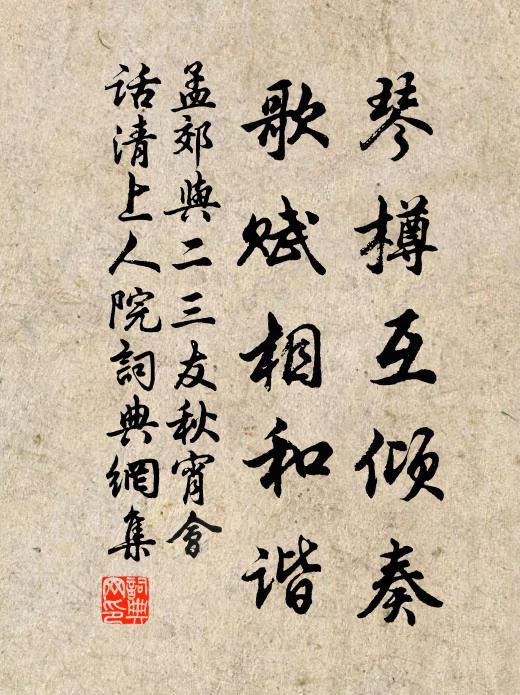 琴樽互倾奏
歌赋相和谐
孟郊與二三友秋宵會
话清上人院詞典網集
詞典网印